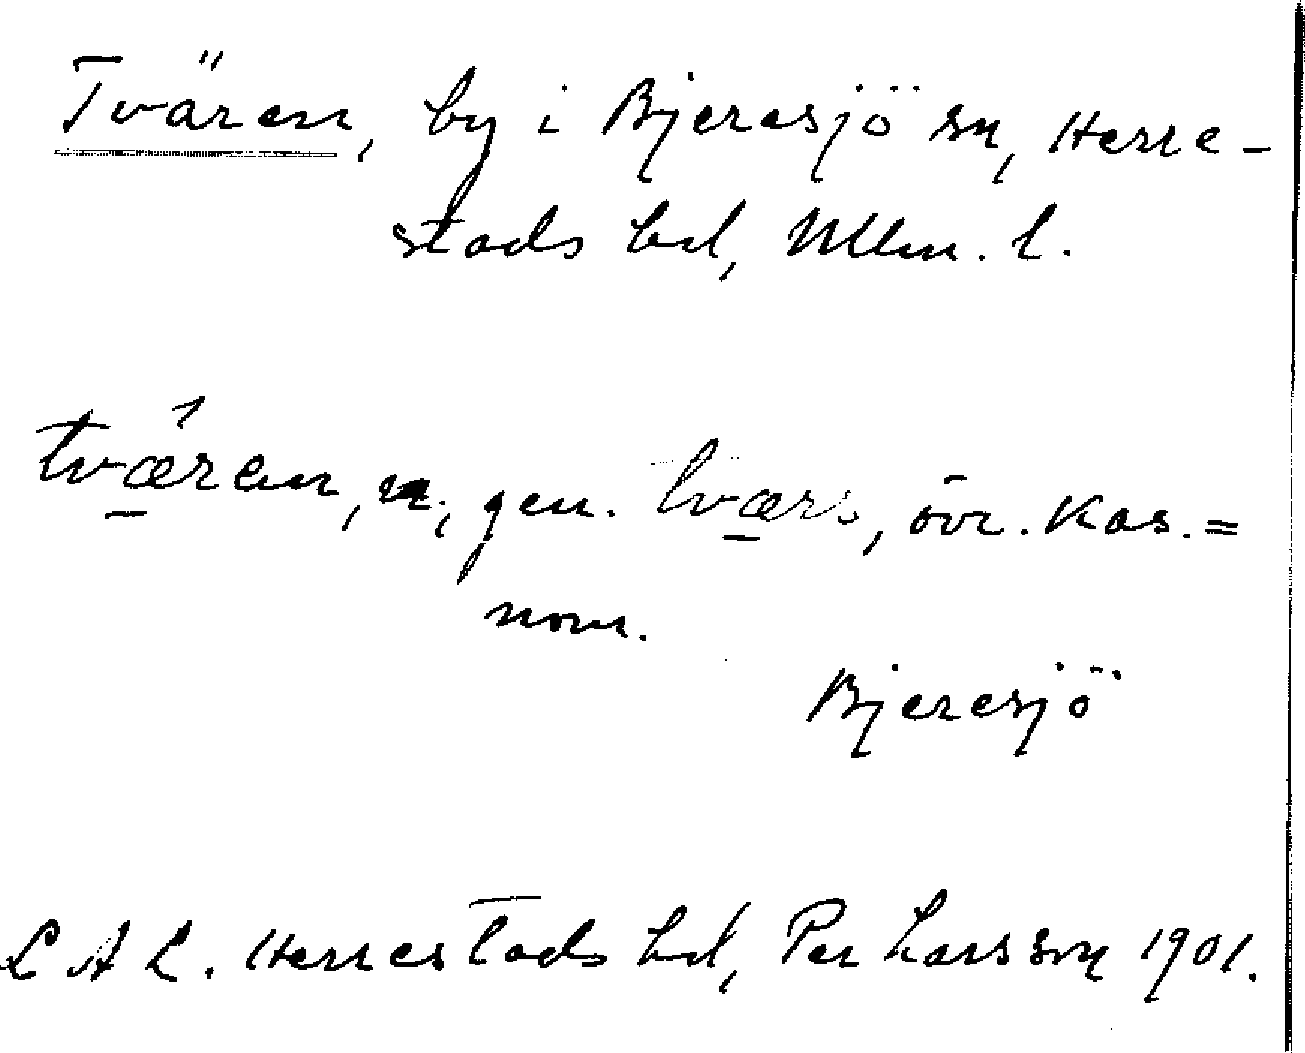 Tvären, by i Bjeresjö sn, Herre-
stads hd, Mlm. l.
tvǽren, n., gen. tværs, övr. kas. =
nom.
Bjeresjö
L A L. Herrestads hd, Per Larsson 1901.